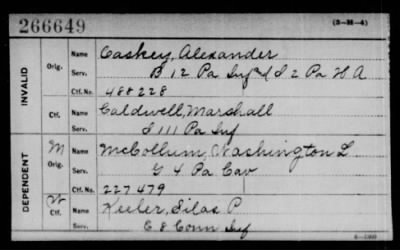 266649
(3-38-4)
INVALID
Orig.
Name Caskey, Alexander
Serv. B 12 Pa Inf & I 2 Pa H A
Ctf. No. 488228
Ctf.
Name Caldwell, Marshall
Serv. I 111 Pa Inf
DEPENDENT
M
Orig.
Name McCollum, Washington L
Serv. G 4 Pa Cav
Ctf. No. 227479
W
Ctf.
Name Keeler, Silas P
Serv. C 8 Conn Inf